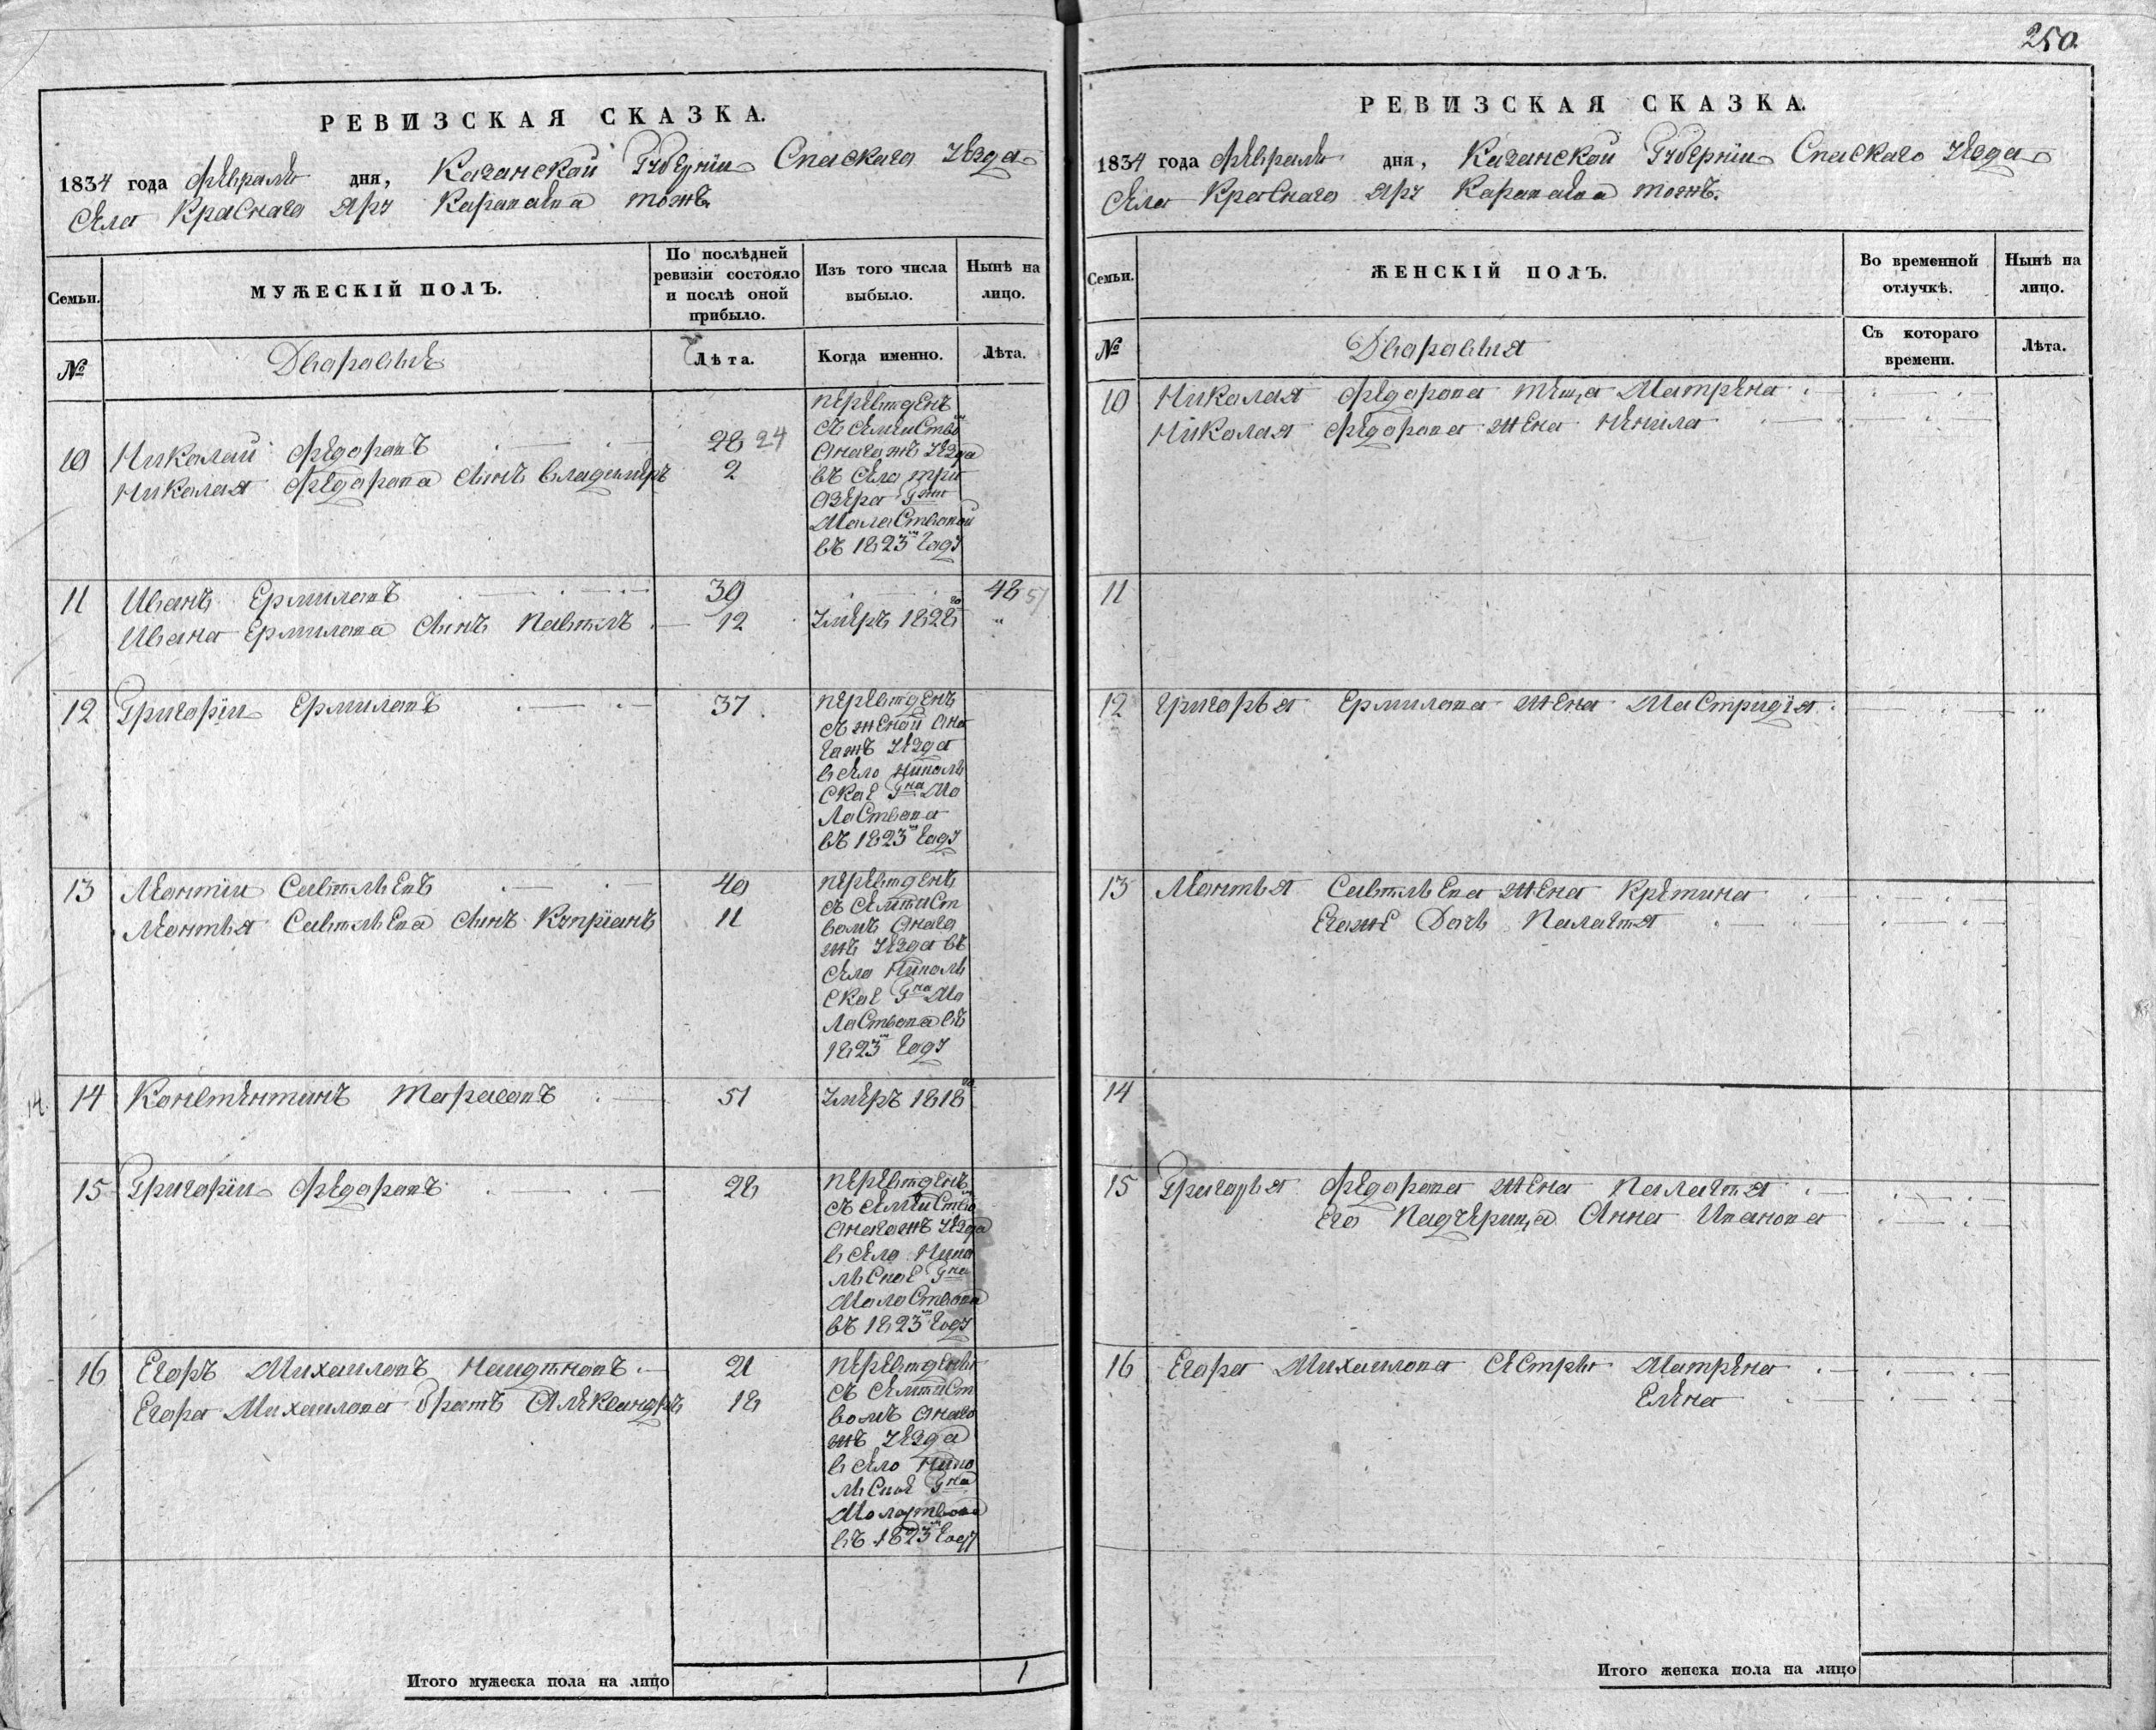 250.
РЕВИЗСКАЯ СКАЗКА.
1834 года февраля дня, Казанской Губернiи Спаскаго Уезда
Села Краснаго Яру тожъ
Семьи.
МУЖЕСКIЙ ПОЛЪ.
По послѣдней ревизiи состояло и послѣ оной прибыло.
Изъ того числа выбыло.
Нынѣ на лицо.
№
Лѣта.
Когда именно.
Лѣта.
10 Николай Федоровъ 28 24
Николая Федорова сынъ Владимеръ 2
переведенъ
съ семейство
онагожъ уезда
въ село три
озера Гжи
Молоствовой
въ 1823 году
11 Иванъ Ермиловъ 39 48 51
Ивана Ермилова сынъ Павелъ 12 умеръ 1828
12 Григорiй Ермиловъ 37
переведенъ
съ женой она
гожъ уезда
в село Николь
ское Гна Мо
лоствова
въ 1823 году
13 Леонтiй Савельевъ 40
Леонтья Савельева сынъ Купрiянъ 11
переведенъ
съ семейст
вомъ онаго
жъ уезда въ
село Николь
ское Гна Мо
лоствова въ
1823 году
14 14 Констентинъ Тарасовъ 51 умеръ 1818
15 Григорiй Федоровъ 28
переведенъ
съ семейство
онагожъ уезда
в село Нико
льское Гна
Молоствова
въ 1823 году
16 Егоръ Михаиловъ 21
Егора Михаилова братъ Александръ 18
переведены
съ семейст
вомъ онаго
жъ уезда
в село Нико
льское Гна
Молоствова
въ 1823 году
Итого мужеска пола на лицо 1
РЕВИЗСКАЯ СКАЗКА.
1834 года февраля дня, Казанской Губернiи Спаскаго Уезда
Села Краснаго Яру тожъ.
Семьи.
ЖЕНСКIЙ ПОЛЪ.
Во временной отлучкѣ.
Нынѣ на лицо.
№
Съ котораго времени.
Лѣта.
10 Николая Федорова теща Матрена
Николая Федорова жена Ненила
11
12 Григорья Ермилова жена Мастридiя
13 Леонтья Савельева жена
Егоже дочь Палагея
14
15 Григорья Федорова жена Палагея
Его падчерица Анна Иванова
16 Егора Михаилова сестры Матрена
Елена
Итого женска пола на лицо